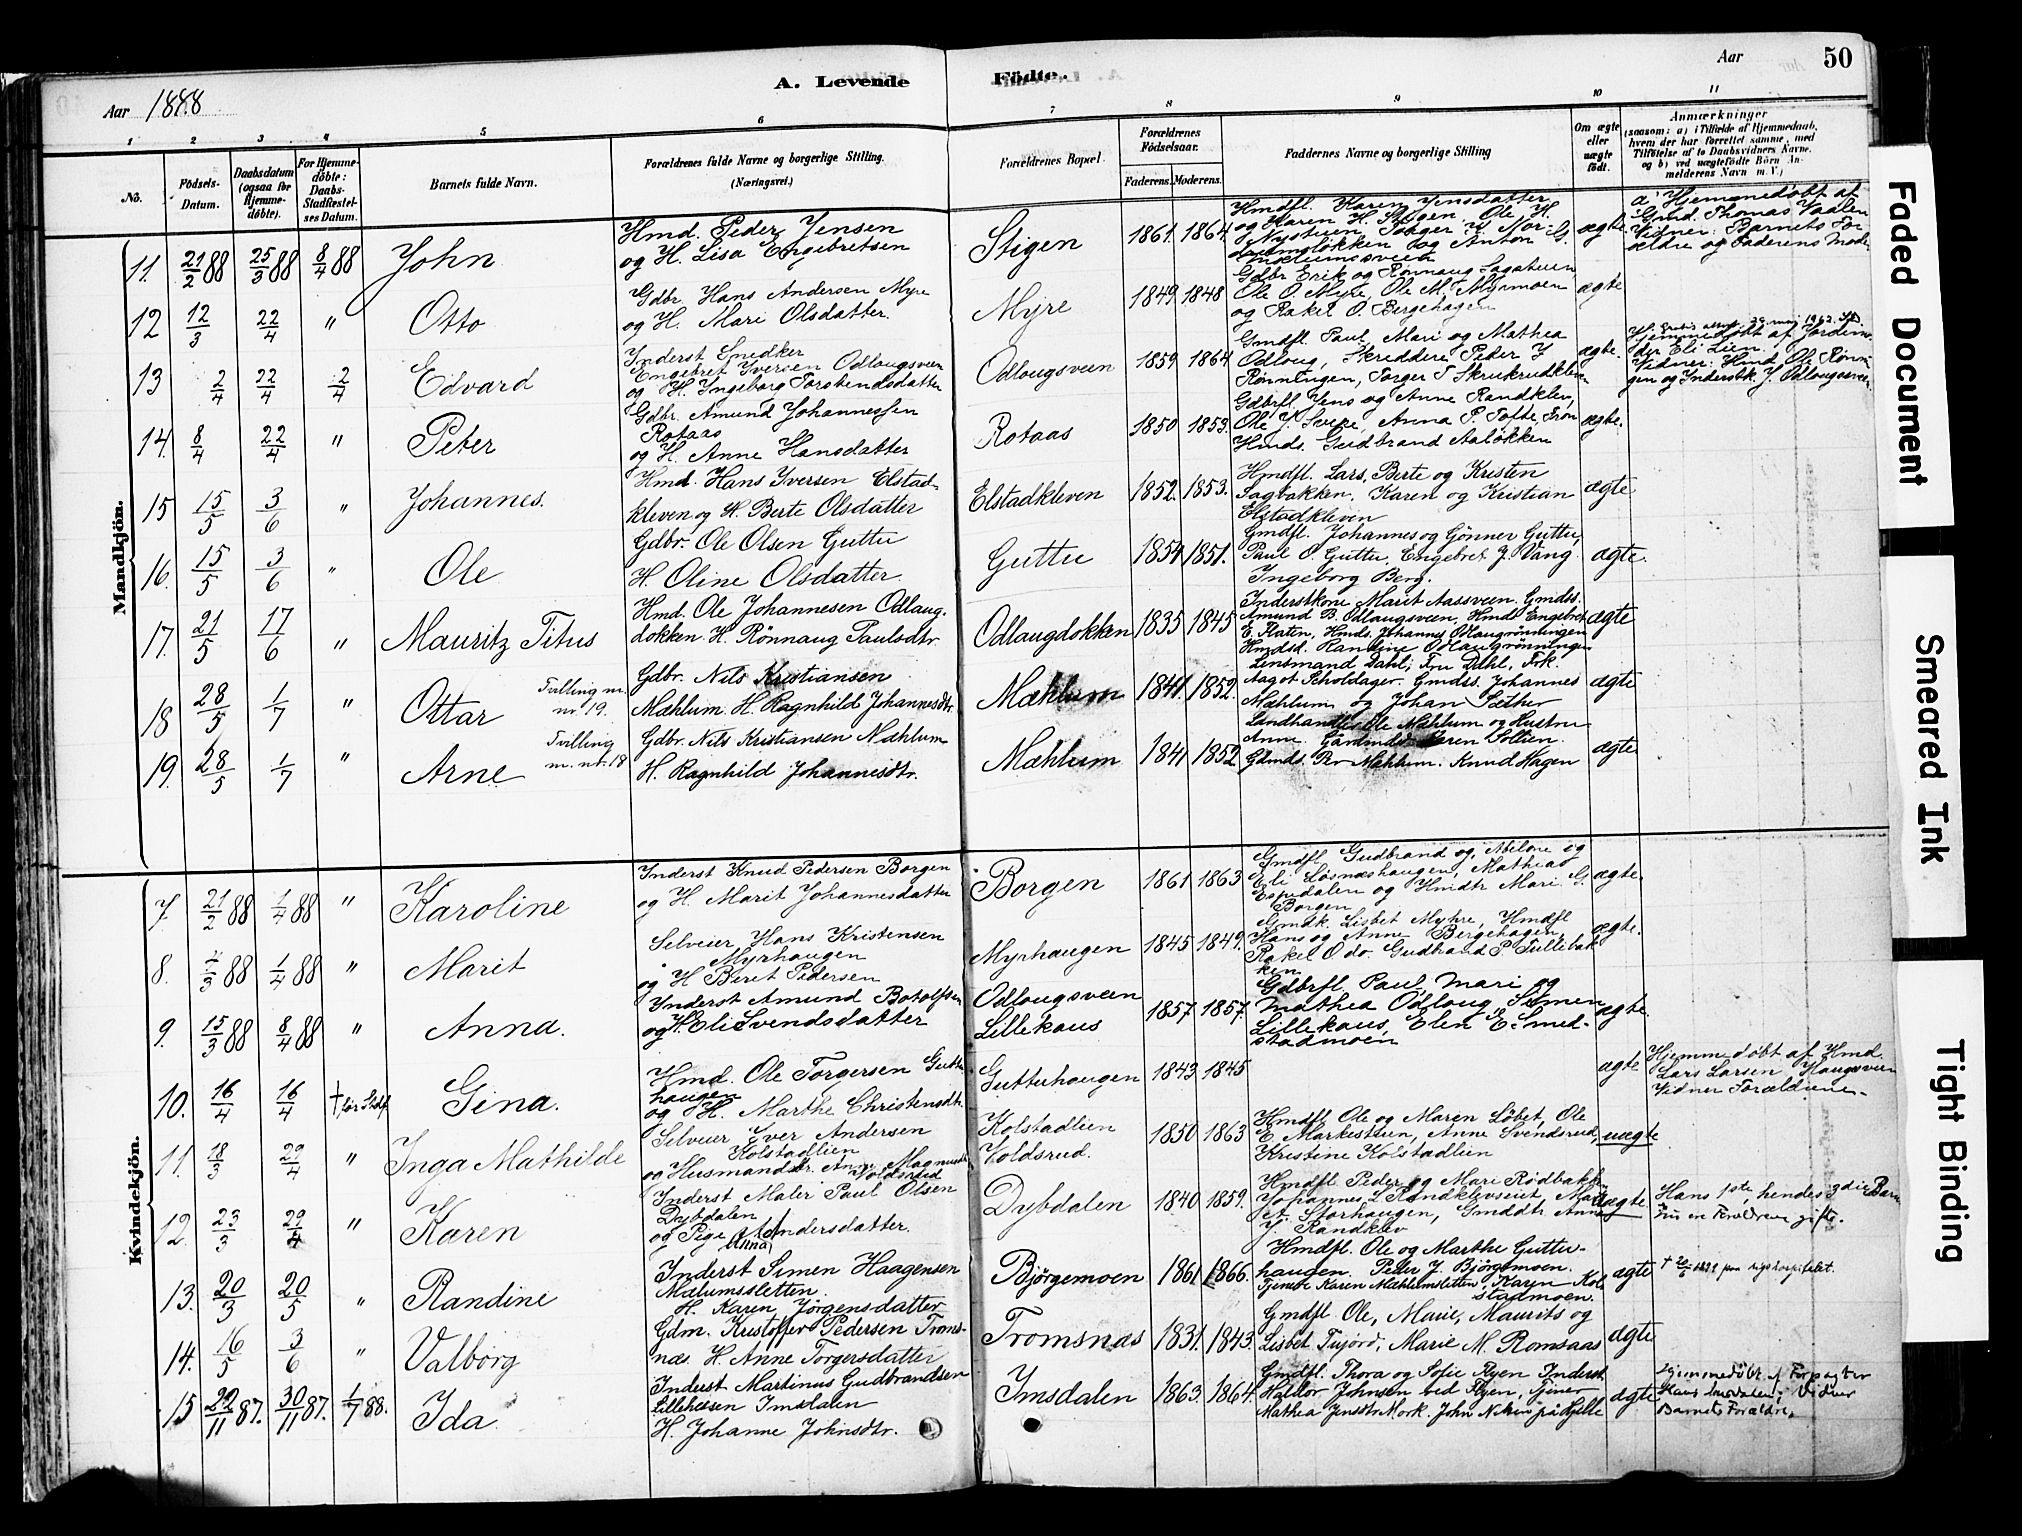 Aar 1888
A. Levende
Födte.
Aar
50
1
2
3
4
5
6
7
8
9
10
11
No.
Födsels-Datum.
Daabsdatum (ogsaa for Hjemme-döbte).
For Hjemme-döbte: Daabs-Stadfæstel-ses Datum.
Barnets fulde Navn.
Forældrenes fulde Navne og borgerlige Stilling. (Næringsvei.)
Forældrenes Bopæl.
Forældrenes Födselsaar.
Faderens. Moderens.
Faddernes Navne og borgerlige Stilling
Om ægte eller uægte födt.
Anmærkninger
(saasom: a) i Tilfælde af Hjemmedaab,
hvem der har forrettet samme, med
Tilföielse af to Daabsvidners Navne.
og b) ved uægtefödte Börn An-
melderens Navn m. V.)
Mandkjön.
11. 21/2 88 25/3 88 8/4 88 John
Hmd. Peder Jensen
og H. Lisa Engebretsen
Stigen 1861. 1864
Hmdfl. Karen Jensdatter
og Karen H. Stigen, Ole H.
ægte
a. Hjemmedøbt af
Gmd. Thomas Vaalen
Vidner: Barnets For-
ældre og Faderens Moder
12 12/3 22/4 " Otto
Gdbr. Hans Andersen Myre
og H. Mari Olsdatter.
Myre 1849. 1848
Gdbr Erik og Rønnaug Sagatuen
Ole O. Myre, Ole M. Myrmoen
og Rakel O. Bergehagen
ægte
13 2/4 22/4 2/4 Edvard
Inderst Snedker
Engebret Iversen Odlougsveen
og H. Ingeborg Torstensdatter
Odlougsveen 1859. 1864
Gmdfl. Paul, Mari og Mathea
Odloug, Skredder Peder J
Rønningen, Torger T Skrukrudkleven
ægte.
Hjemmedøbt af Jordemo-
der Eli Lien.
Vidner: Hmd. Ole Rønn-
gen og Inderstk. J. Odlougsveen
14. 8/4 22/4 " Peter
Gdbr. Amund Johannessen
Rotaas
og H. Anne Hansdatter
Rotaas 1850 1853.
Gdbrfl. Jens og Anne Randklev,
Ole J. Svere, Anna P. Tofte, Fron
Hmds. Gudbrand Aaløkken
ægte.
15 15/5 3/6 " Johannes.
Hmd. Hans Iversen Elstad-
kleven og H. Berte Olsdatter
Elstadkleven 1852. 1853.
Hmdfl. Lars, Berte og Kristen
Sagbakken. Karen og Kristian
Elstadkleven
ægte
16. 15/5 3/6 " Ole
Gdbr. Ole Olsen Guttu
H. Oline Olsdatter.
Guttu 1854 1851.
Gmdfl. Johannes og Gønner Guttu,
Paul O. Guttu, Engebret J. Vang
Ingeborg Berg.
ægte.
17. 21/5 17/6 " Mauritz Titus
Hmd. Ole Johannesen Odlaug-
dokken. H. Rönnaug Paulsdtr.
Odlaugdokken 1835 1845
Inderstkone Marit Aassveen. Gmdss.
Amund B. Odlaugsveen, Hmds Engebret
E. Flaten, Hmds. Johannes Odlaugrönningen
Hmdsd. Handine Odlaugrönningen
ægte
18 28/5 1/7 " Ottar Tvilling m. nr. 19.
Gdbr. Nils Kristiansen
Mæhlum. H. Ragnhild Johannesdtr.
Mæhlum 1841. 1852.
Lensmand Dahl, Fru Dahl, Frk.
Aagot Scholdager. Gmdss. Johannes
Mæhlum og Johan Sæther
ægte
19. 28/5 1/7 " Arne Tvilling m. nr. 18
Gdbr. Nils Kristiansen Mæhlum
H. Ragnhild Johannesdtr.
Mæhlum 1841 1852
Landhandler Ole Mæhlum og Hustru
Anne. Karen Sollien.
Gdmds. Per Mæhlum. Knud Hagen
ægte
Kvindekjön.
7. 21/2 88 1/4 88 " Karoline
Inderst Knud Pedersen Borgen
og H. Marit Johannesdatter
Borgen 1861 1863
Gmdfl. Gudbrand og Abelone og
Eli Løsnæshaugen, Mathias
Espedalen og Hmdtr Mari G.
Borgen
ægte.
8. 1/3 88 1/4 88 " Marit
Selveier Hans Kristensen
Myrhaugen
og H Beret Pedersen
Myrhaugen 1845 1849.
Gmdk. Lisbet Myhre, Hmdfl
Hans og Anne Bergehagen
Rakel O do. Gudbrand P. Tullebak-
ken
ægte.
9. 15/3 88 8/4 88 " Anna.
Inderst Amund Botolfsen
og H Eli Svendsdatter
Odlougsveen
Lillekaus
1857 1857.
Gdbrfl Paul, Mari og
Mathea Odloug, Simen
Lillekaus, Elen E. Smed-
stadmoen
ægte.
10. 16/4 16/4 † før Stdf. Gina.
Hmd. Ole Torgersen Guttu
haugen
og H. Marthe Christensdtr.
Gutuhaugen 1843 1845
ægte
Hjemmedøbt af Hmd.
Lars Larsen Haugsveen
Vidner Forældrene.
11. 18/3 29/4 " Inga Mathilde
Selveier Iver Andersen
Kolstadlien
og Husmandsdtr. Anne Magnusdtr
Voldsrud
Kolstadlien
Voldsrud.
1850 1863
Hmdfl Ole og Maren Løbet, Ole
E. Markestuen, Anne Svendsrud,
Kristine Kolstadlien
uægte
12. 23/3 29/4 " Karen
Inderst Maler Paul Olsen
Dybdalen
og Pige Anna Andersdatter.
Dybdalen 1840 1859.
Hmdfl Peder og Mari Rødbakken
Johannes L Randklevseiet, Mari
A. Storhaugen, Gmddtr Anne
J. Randklev
uægte
Hans 1ste hendes 3die Barn
nu en Forældrene gifte.
13. 20/3 20/5 " Randine
Inderst Simen Haagensen
Mælumssletten.
H. Karen Jørgensdatter
Bjørgemoen 1861 1866.
Hmdfl. Ole og Marthe Guttu-
haugen. Peter J. Bjørgemoen.
Tjenere Karen Mæhlumsletten, Karen Kol-
stadmoen.
ægte
14. 16/5 3/6 " Valborg
Gdm. Kristoffer Pedersen Troms-
næs. H. Anne Torgersdatter
Tromsnæs 1831. 1843.
Gmdfl Ole, Marie, Maurits og
Lisbet Fujord, Marie M. Romsaas
ægte
15 22/11 87. 30/11 87. 1/7 88. Ida
Inderst Martinus Gudbrandsen
Lillehusen Imsdalen
H. Johanne Johnsdtr.
Imsdalen 1863. 1864.
Gmdfl. Thora og Sofie Flyen Inderst
Halvor Johnsen ved Flyen, Tjener
Mathea Jensdtr Mork. John Nilsen på Hjelle
ægte
Hjemmedöbt af Forpagter
Hans Imsdalen; Vidner
Barnets Forældre.
Faded Document
Smeared Ink
Tight Binding